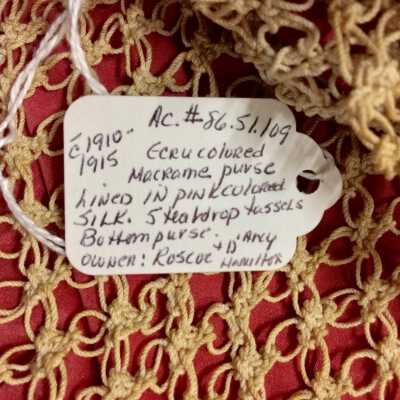 Ac. #86.51.109
c1910-
1915
Ecru colored
Macrame purse
Lined in pink colored
Silk. 5 teardrop tassels
Bottom purse.
Owner: Roscoe + D'Arcy Hamilton